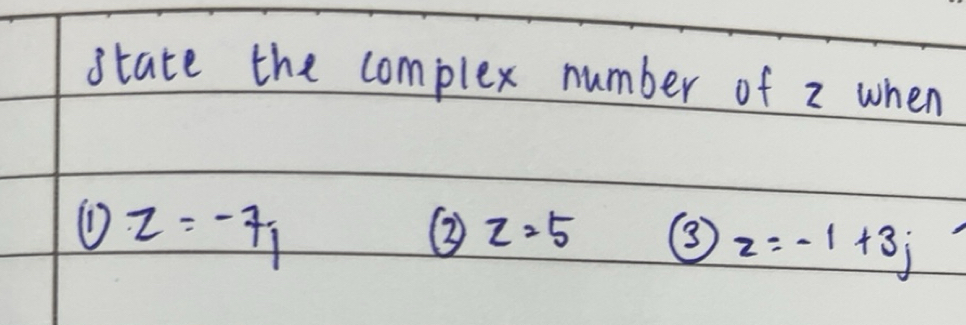 state the complex number of z when
① z = -7j ② z = 5 ③ z = -1 + 3j